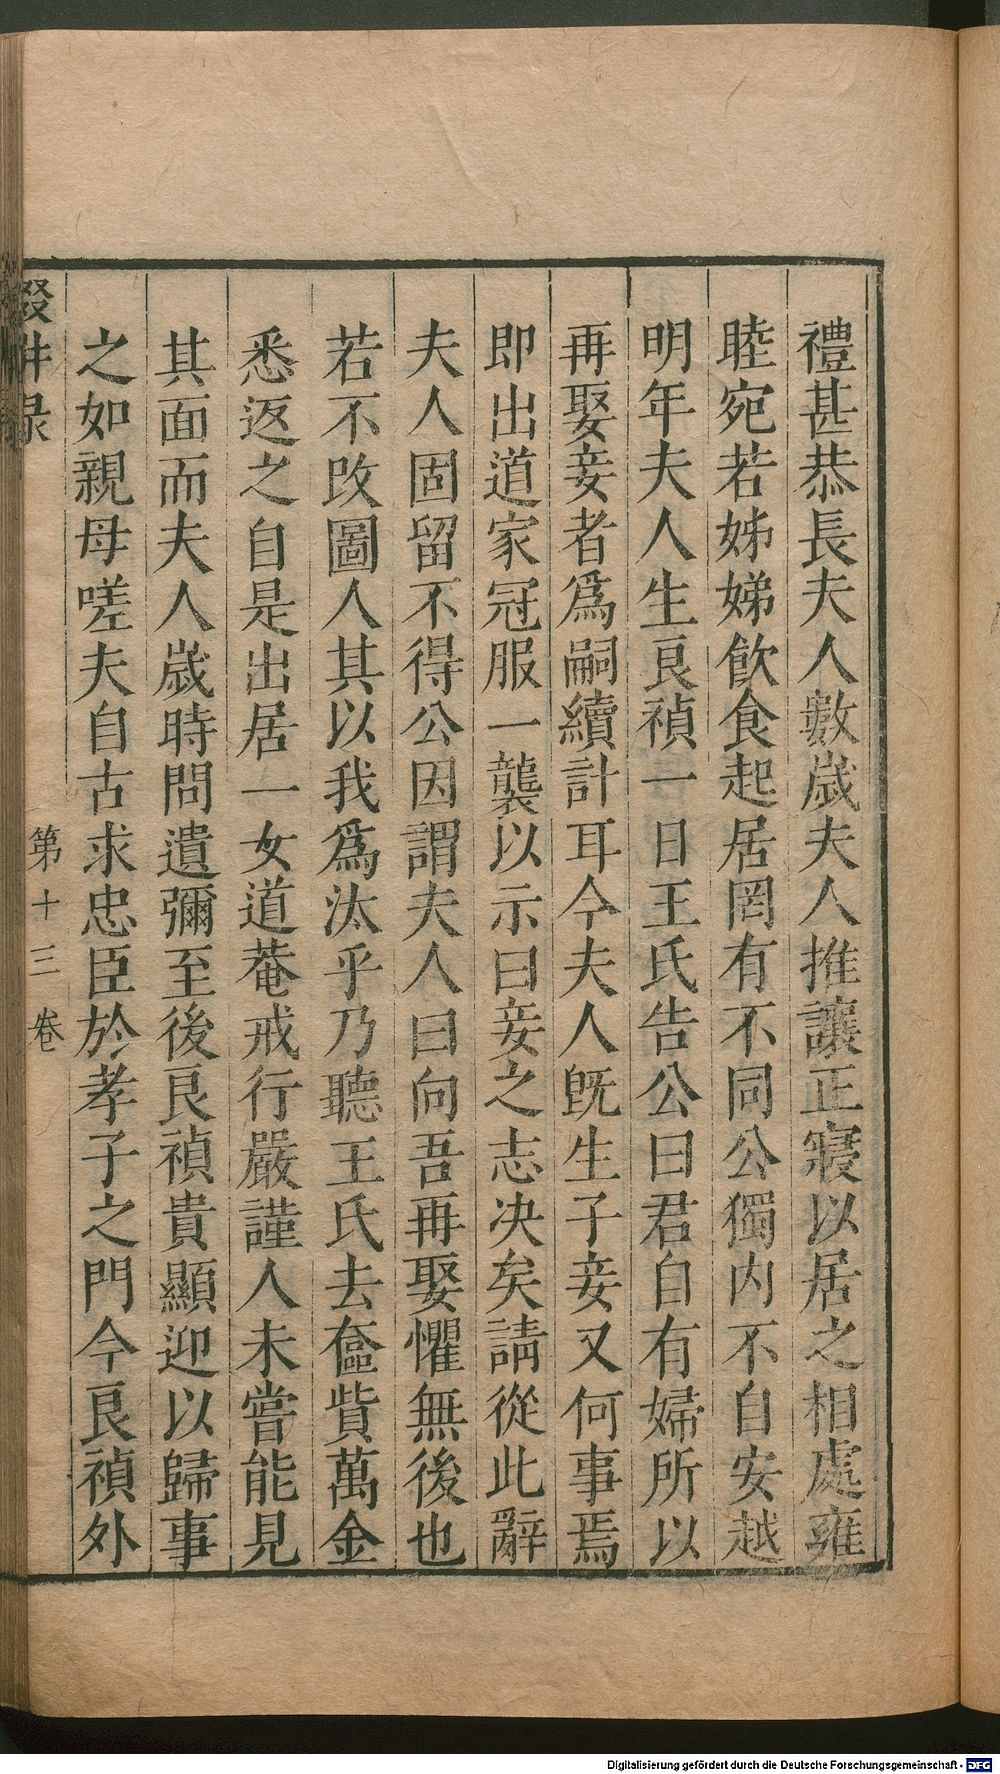 禮甚恭長夫人數歲夫人推讓正寢以居之相處雍
睦宛若姊娣飲食起居罔有不同公獨内不自安越
明年夫人生良禎一日王氏告公曰君自有婦所以
再娶妾者爲嗣續計耳今夫人旣生子妾又何事焉
即出道家冠服一襲以示曰妾之志决矣請從此辭
夫人固留不得公因謂夫人曰向吾再娶懼無後也
若不改圖人其以我爲汰乎乃聽王氏去奩貲萬金
悉返之自是出居一女道菴戒行嚴謹人未嘗能見
其面而夫人歲時問遺彌至後良禎貴顯迎以歸事
之如親母嗟夫自古求忠臣於孝子之門今良禎外
輟畊录
第十三卷
Digitalisierung gefördert durch die Deutsche Forschungsgemeinschaft - DFG